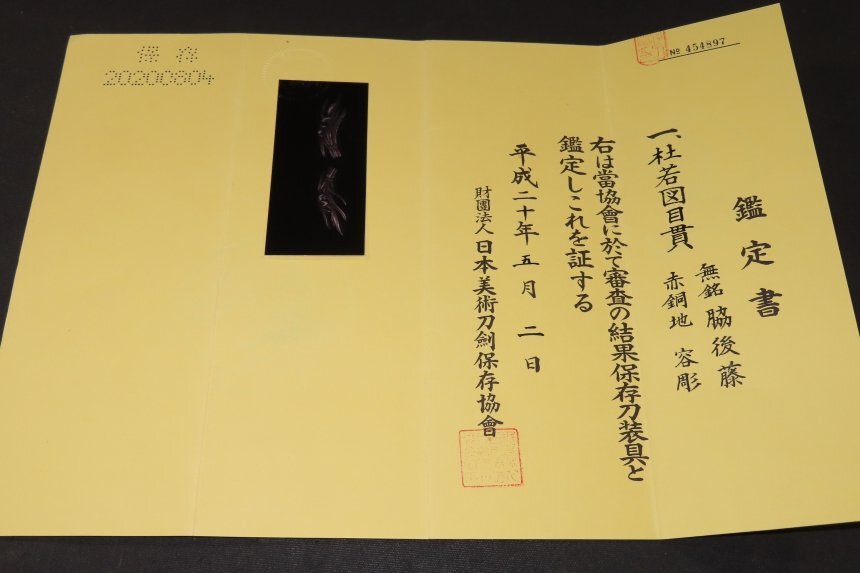 № 454897
鑑定書
一、杜若図目貫
無銘 脇後藤
赤銅地 容彫
右は當協會に於て審査の結果保存刀装具と
鑑定しこれを証する
平成二十年五月二日
財團法人 日本美術刀劍保存協會
保存
20200804